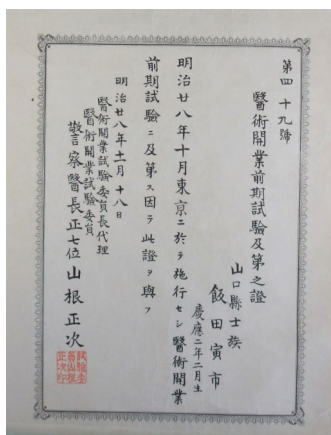 第四十九號
醫術開業前期試驗及第之證
山口縣士族
飯田寅市
慶應二年二月生
明治廿八年十月東京ニ於テ施行セシ醫術開業
前期試驗ニ及第ス因テ此證ヲ與フ
明治廿八年十一月十八日
醫術開業試驗委員長代理
醫術開業試驗委員
警察醫長正七位山根正次